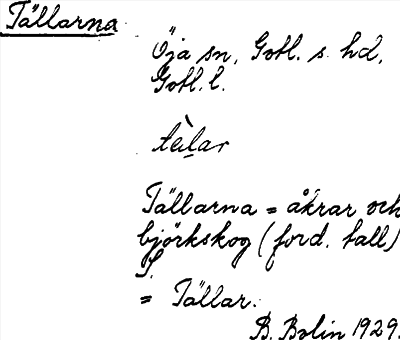 Tällarna
Öja sn, Gotl. s. hd,
Gotl. l.
tèlar
Tällarna = åkrar och
björkskog (ford. tall)
S.
= Tällar.
B. Bolin 1929.